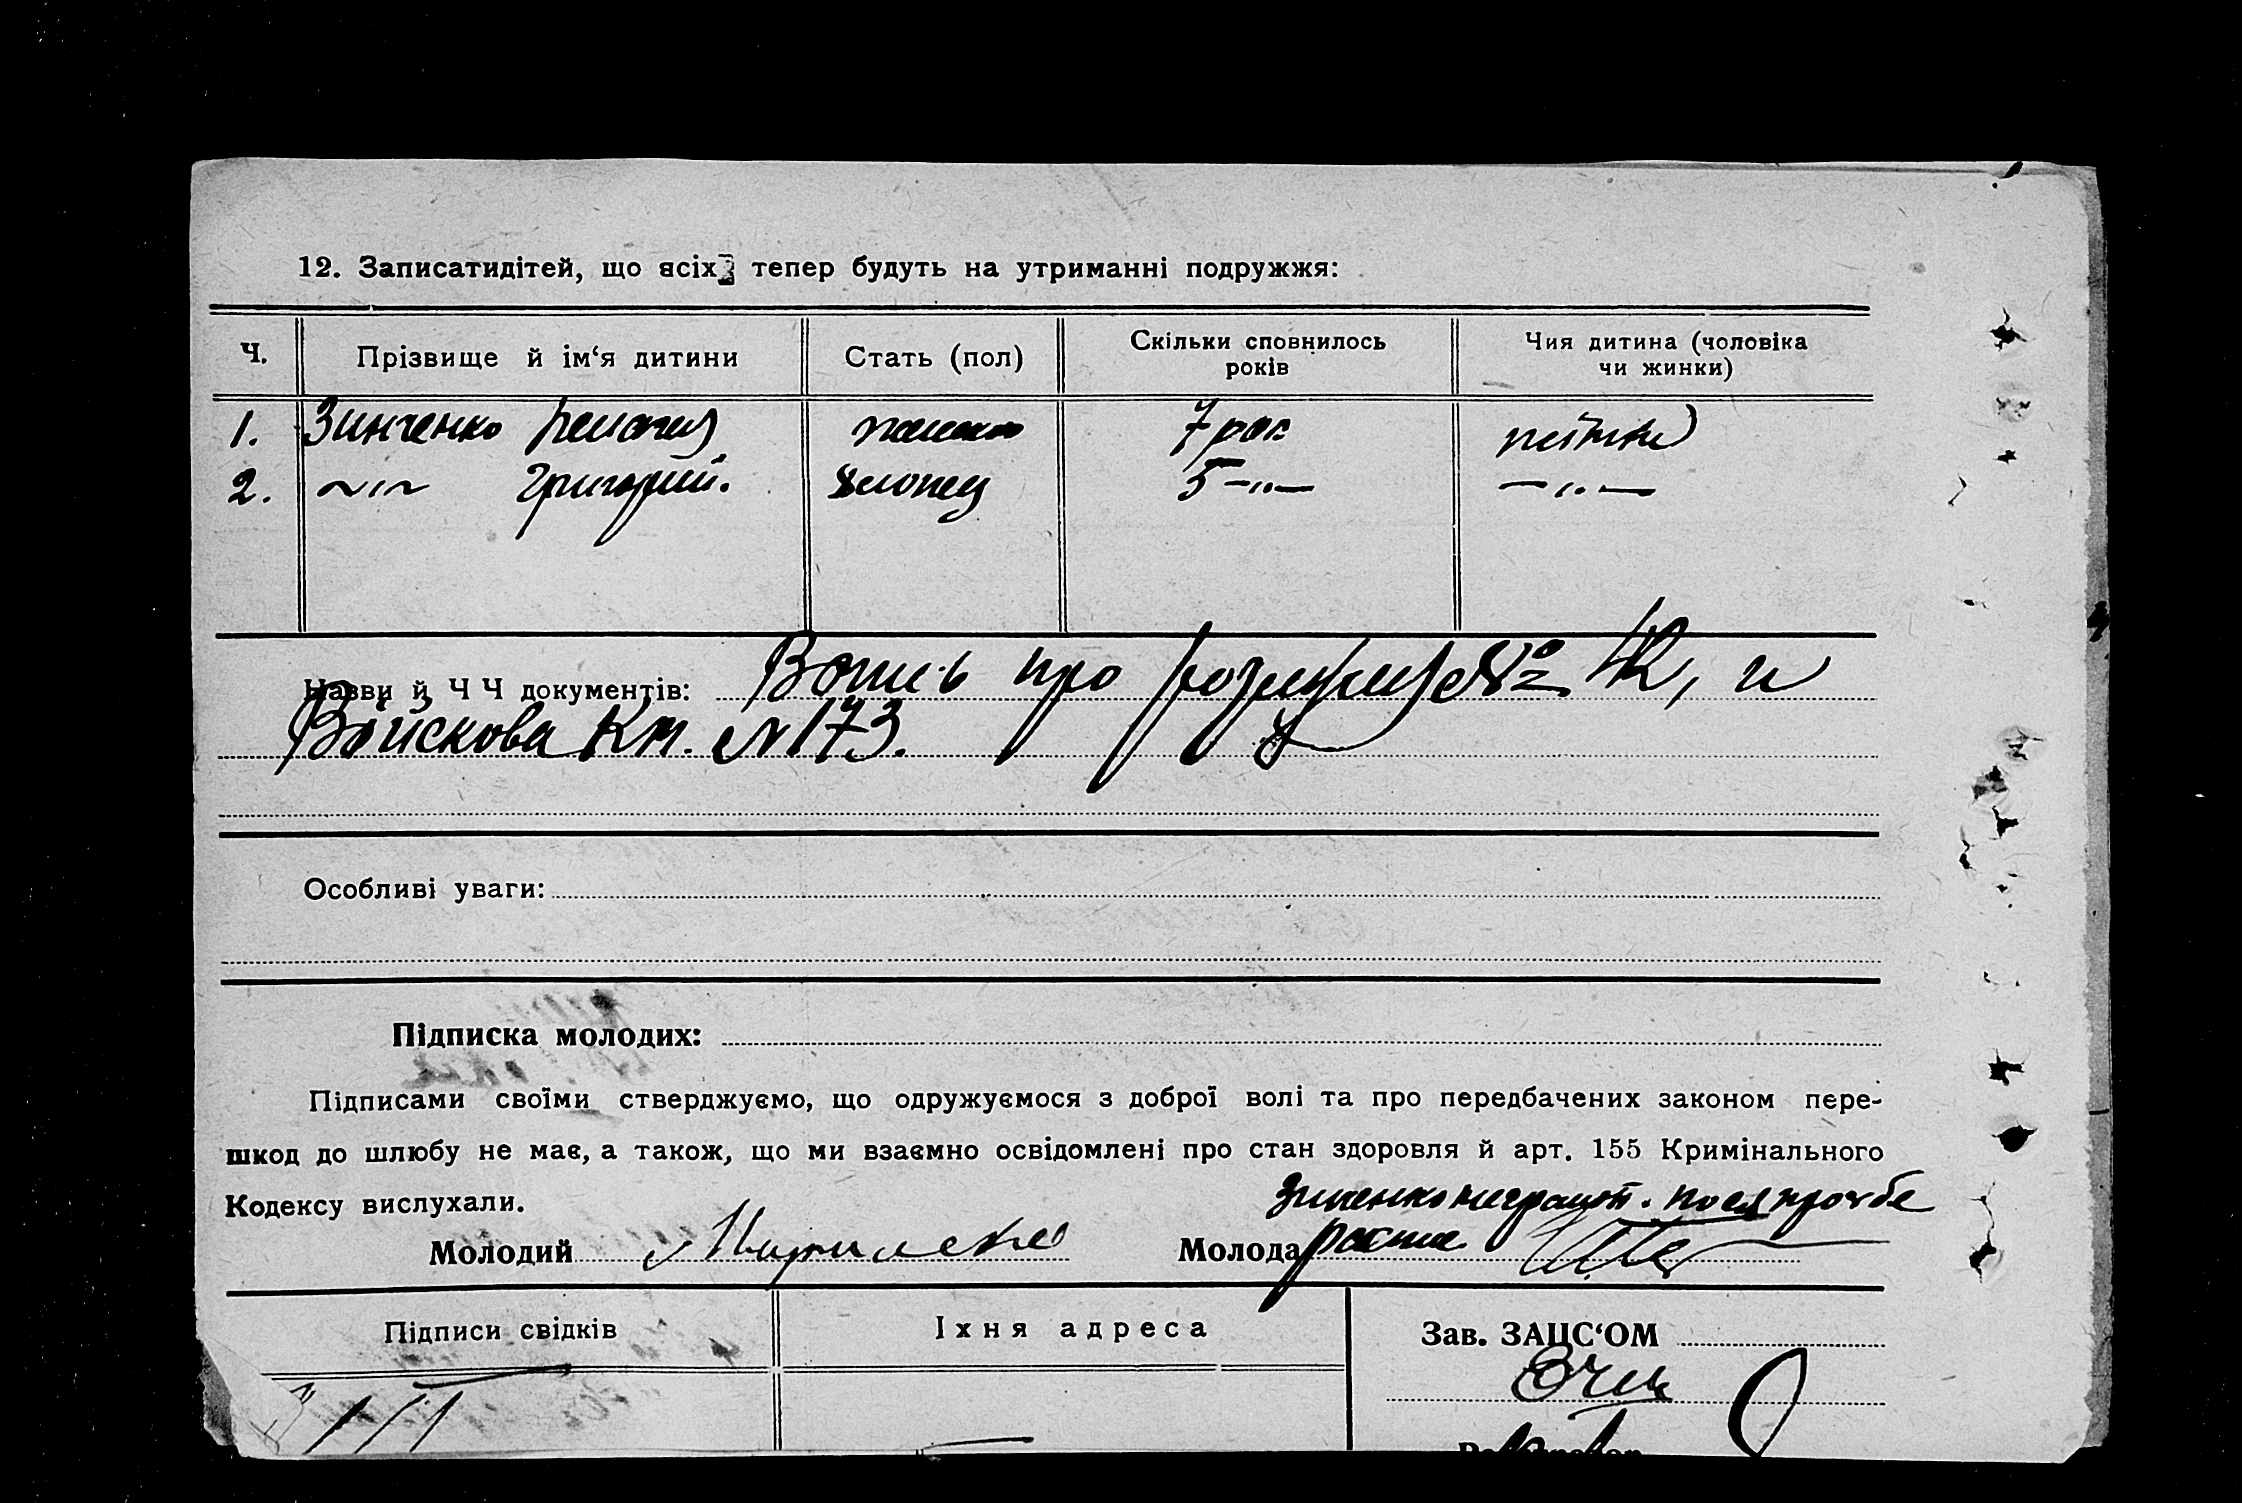 12. Записатидітей, що всіх тепер будуть на утриманні подружжя:
Ч. Прізвище й ім‘я дитини Стать (пол) Скільки сповнилось років Чия дитина (чоловіка чи жинки)
1. Зинченко 7 рок
2. —〃— Григорий. хлопец 5 —〃— —〃—
Назви й Ч Ч документів: про №, и
Войскова Кн. № 173.
Особливі уваги:
Підписка молодих:
Підписами своїми стверджуємо, що одружуємося з доброї волі та про передбачених законом пере-
шкод до шлюбу не має, а також, що ми взаємно освідомлені про стан здоровля й арт. 155 Кримінального
Кодексу вислухали.
Зинченко неграмот. по ея прозбе
Молодий Молода
Підписи свідків Їхня адреса Зав. ЗАЦС‘ОМ